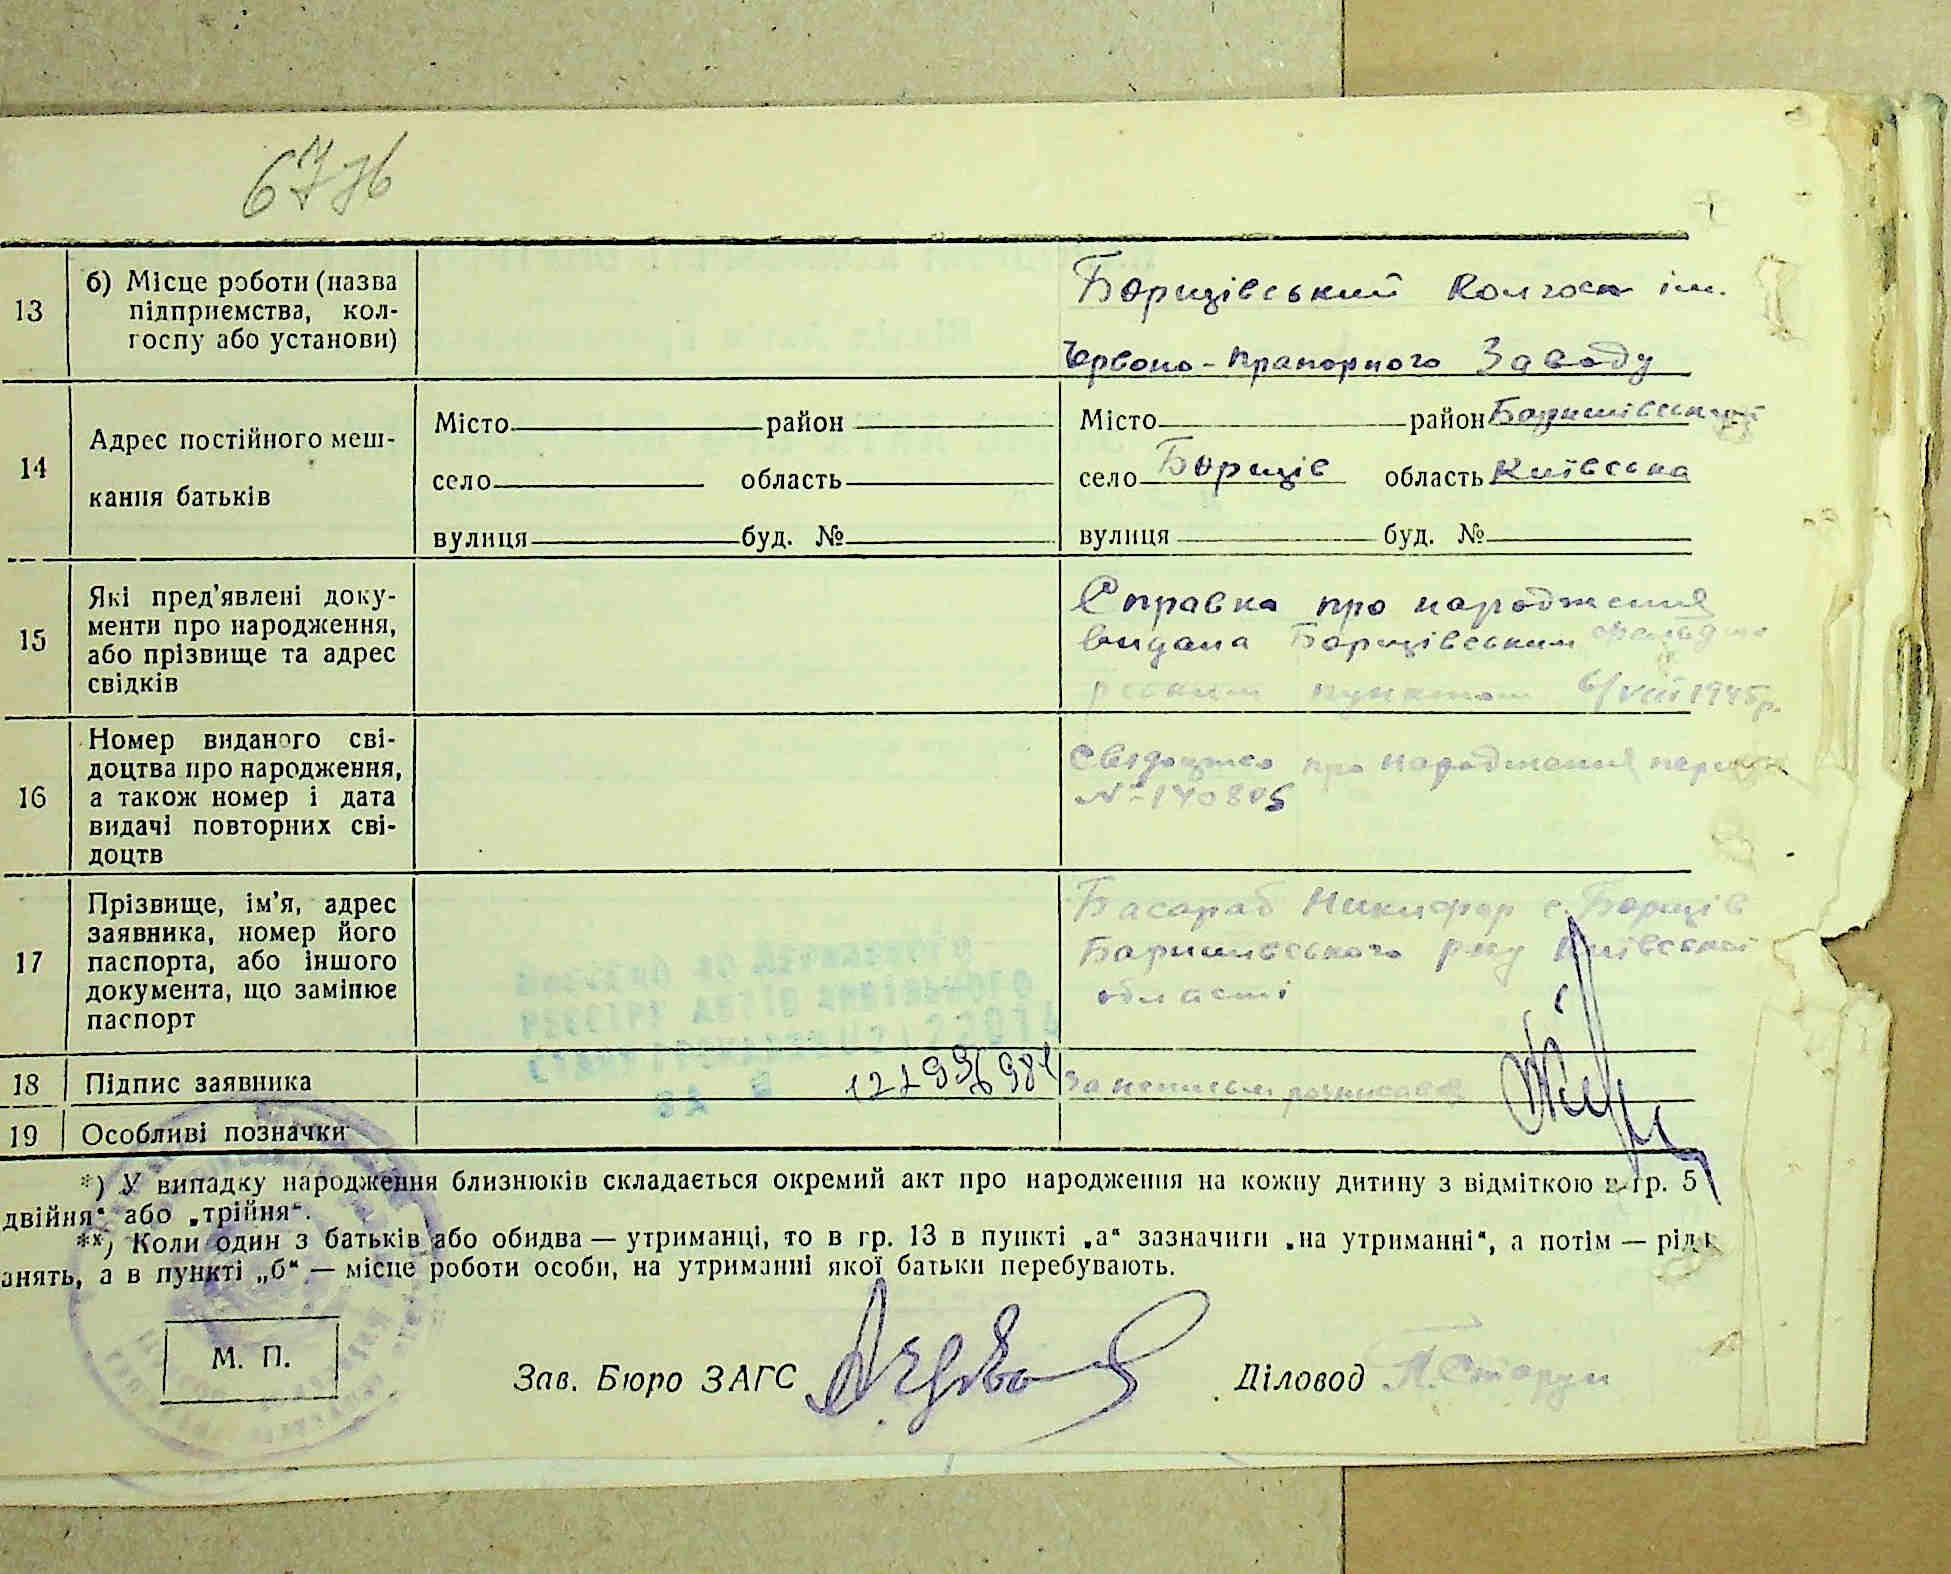 6776
13
б) Місце роботи (назва
підприємства, кол-
госпу або установи)
Борщівський колгосп ім.
Червоно-Прапорного Заводу
14
Адрес постійного меш-
кання батьків
Місто район
село область
вулиця буд. №
Місто район Баришівський
село Борщів область Київська
вулиця буд. №
15
Які пред'явлені доку-
менти про народження,
або прізвище та адрес
свідків
Справка про народження
видана Борщівським фельдше
рским пунктом 6/VIII 1945р.
16
Номер виданого сві-
доцтва про народження,
а також номер і дата
видачі повторних сві-
доцтв
Свідоцтво про народження
№ 140805
17
Прізвище, ім'я, адрес
заявника, номер його
паспорта, або іншого
документа, що замінює
паспорт
Басараб Никифор с. Борщів
Баришівського р-ну Київської
області
Внесено до Державного
реєстру актів цивільного
стану громадян
за №
18
Підпис заявника
За неписьм. розписався
19
Особливі позначки
*) У випадку народження близнюків складається окремий акт про народження на кожну дитину з відміткою в гр. 5
двійня“ або „трійня“.
**) Коли один з батьків або обидва — утриманці, то в гр. 13 в пункті „а“ зазначити „на утриманні“, а потім — рід
анять, а в пункті „б“ — місце роботи особи, на утриманні якої батьки перебувають.
М. П.
Зав. Бюро ЗАГС
Діловод